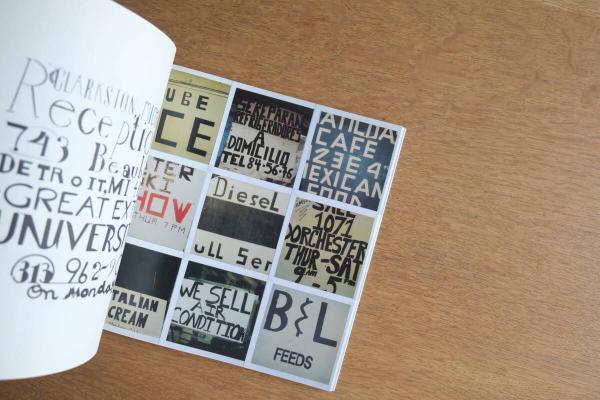 CLARKSTON,
Reception
743 Beau
DETROIT, MI
GREAT EX
UNIVERS
313 962-9
On Monda
UBE
CE
SE REPARAN
REFRIGERADORES
A
DOMICILIO
TEL 84-56-76
CAFE
EXICAN
FOOD
TER
KI
HOW
THUR 7 PM
Diesel
ull Ser
1071
DORCHESTER
THUR-SAT
9AM - 5
TALIAN
CREAM
WE SELL
AIR
CONDITION
B & L
FEEDS